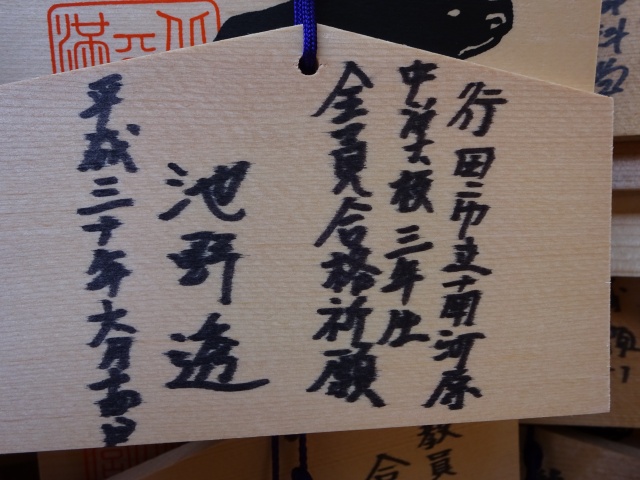 行田市立南河原
中学校三年生
全員合格祈願
池野透
平成三十年六月十四日
教員
合
満